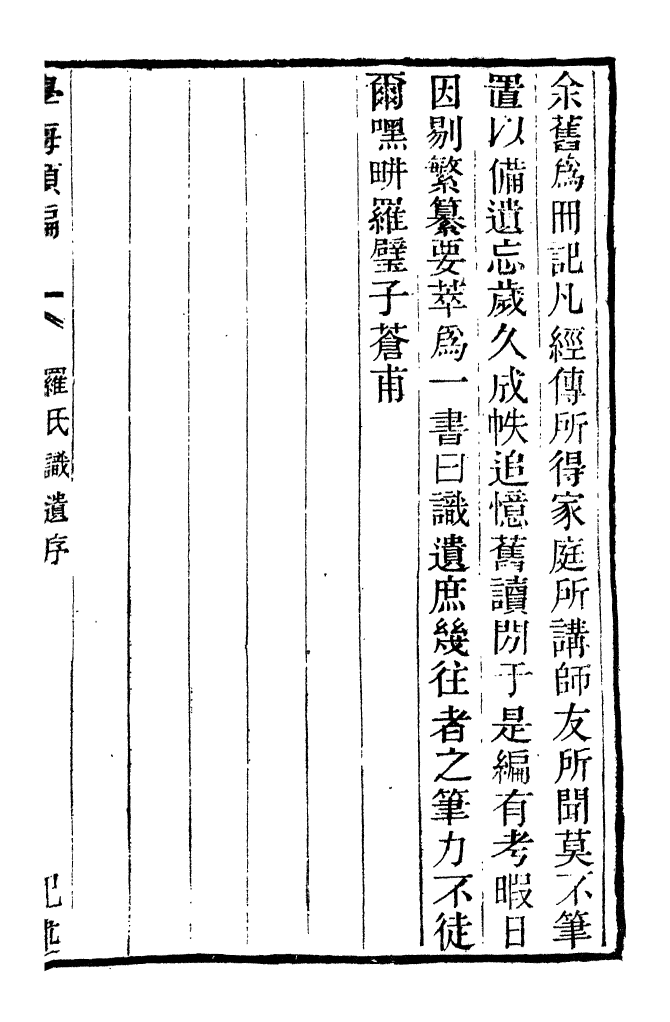 余舊爲冊記凡經傳所得家庭所講師友所聞莫不筆
置以備遺忘歲久成帙追憶舊讀閒于是編有考暇日
因剔繁纂要萃爲一書曰識遺庶幾往者之筆力不徒
爾嘿畊羅璧子蒼甫
學海類編
羅氏識遺序